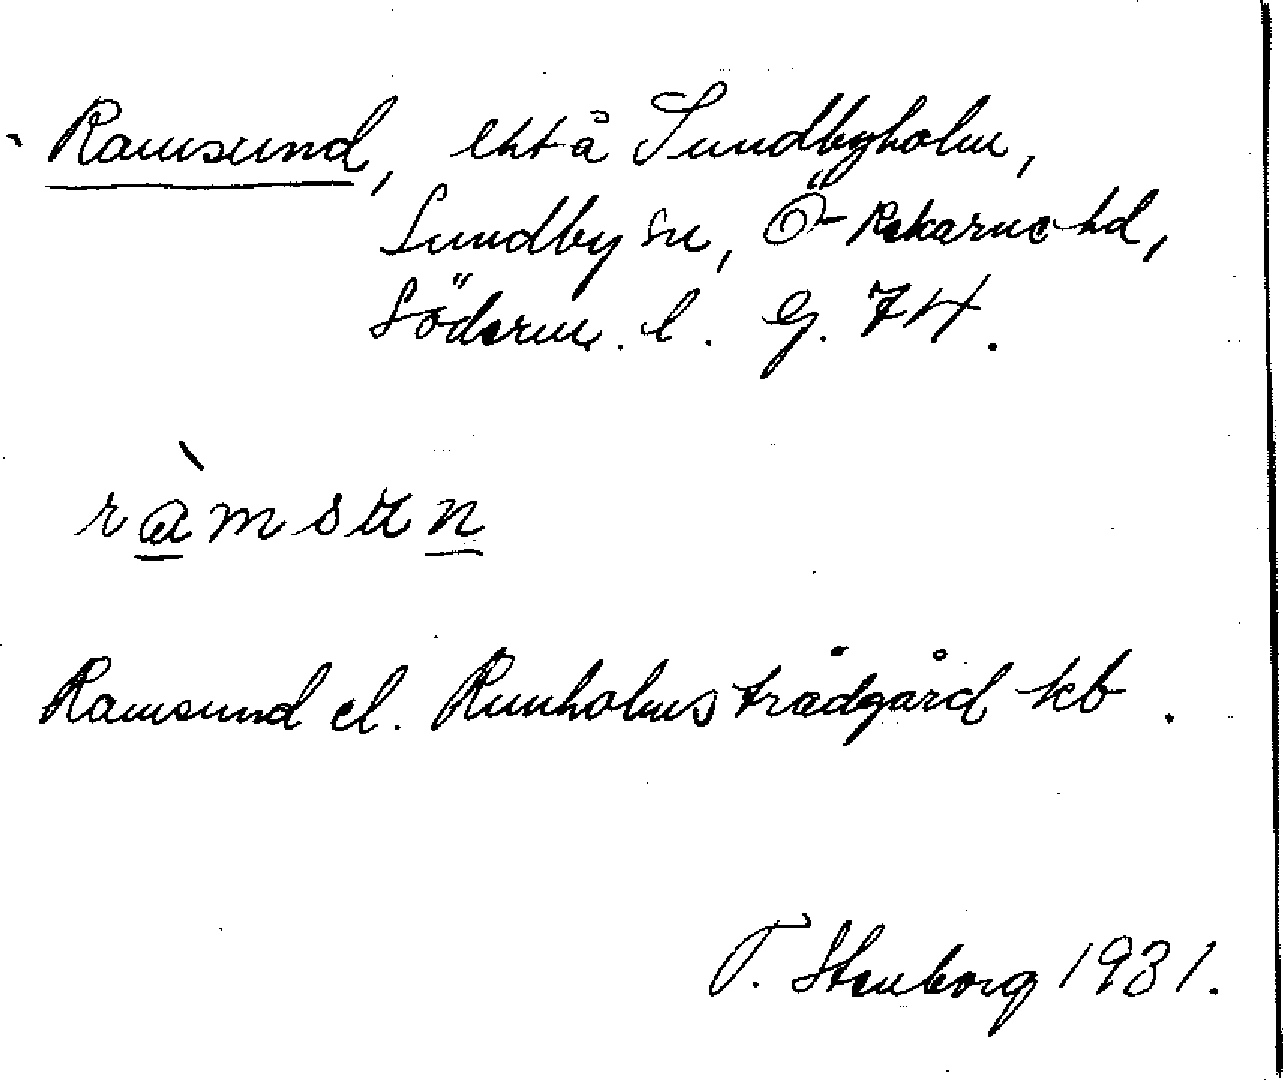 Ramsund, ext å Sundbyholm,
Sundby sn, Ö-Rekarne hd,
Söderm. l. G. 74.
ràmsun
Ramsund el. Runholms trädgård kb.
T. Stenborg 1931.